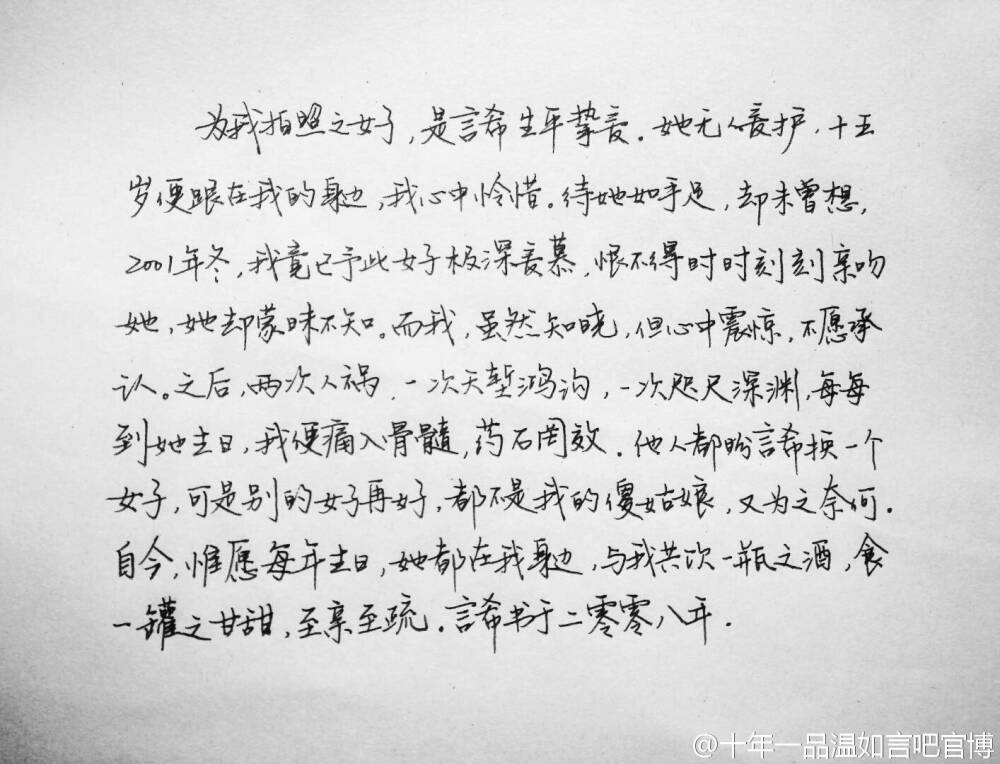 为我拍照之女子，是言希生平挚爱。她无人爱护，十五
岁便跟在我的身边，我心中怜惜。待她如手足，却未曾想，
2001年冬，我竟已予此女子极深爱慕，恨不得时时刻刻亲吻
她，她却蒙昧不知。而我，虽然知晓，但心中震惊，不愿承
认。之后，两次人祸，一次天堑鸿沟，一次咫尺深渊，每每
到她生日，我便痛入骨髓，药石罔效。他人都盼言希换一个
女子，可是别的女子再好，都不是我的傻姑娘，又为之奈何。
自今，惟愿每年生日，她都在我身边，与我共饮一瓶之酒，食
一罐之甘甜，至亲至疏。言希书于二零零八年。
@十年一品温如言吧官博